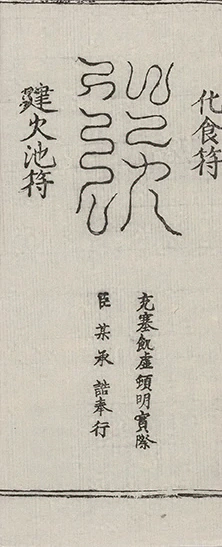 化食符
充塞飢虛頓明實際
臣某承誥奉行
鍵火池符